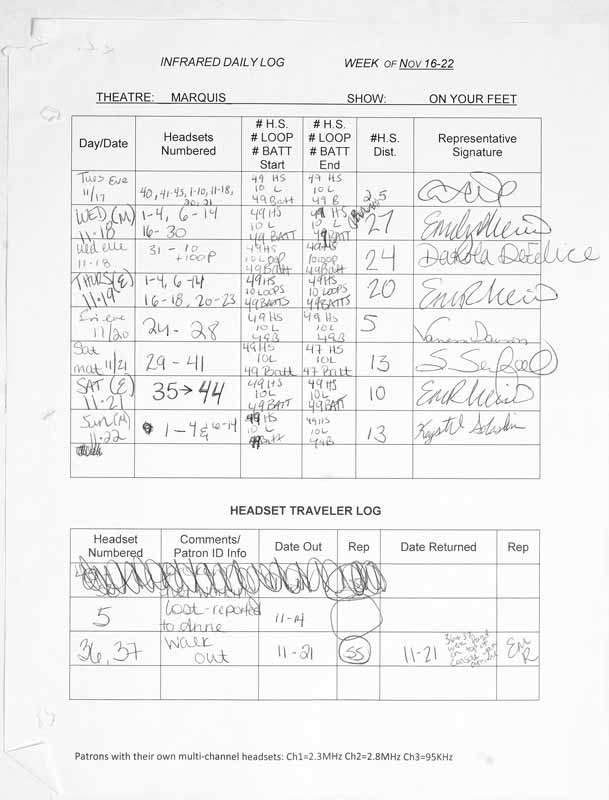 INFRARED DAILY LOG WEEK OF NOV 16-22
THEATRE: MARQUIS SHOW: ON YOUR FEET
Day/Date Headsets Numbered # H.S. # LOOP # BATT Start # H.S. # LOOP # BATT End #H.S. Dist. Representative Signature
Tues Eve 11/17 40, 41-45, 1-10, 11-18, 20, 21 49 HS 10 L 49 Batt 49 HS 10 L 49 B 25
WED (M) 11-18 1-4, 6-14 16-30 49 HS 10 L 49 BATT 49 HS 10 L 49 BATT 27
Wed eve 11-18 31 - 10 + loop 49 HS 10 Loop 49 Batt 49 HS 10 loop 49 Batt 24 Dakota DeFelice
THURS (E) 11-19 1-4, 6-14 16-18, 20-23 49 HS 10 LOOPS 49 BATTS 49 HS 10 LOOPS 49 BATTS 20
Fri. eve 11/20 24 - 28 49 HS 10 L 49 B 49 HS 10 L 49 B 5
Sat mat 11/21 29 - 41 49 HS 10L 49 Batt 47 HS 10L 47 Batt 13
SAT (E) 11-21 35→44 49 HS 10L 49 BATT 49 HS 10L 49 BATT 10
Sun (M) 11-22 1-4 & 6-14 49 HS 10 L 49 Batt 49 HS 10 L 49 B 13
HEADSET TRAVELER LOG
Headset Numbered Comments/ Patron ID Info Date Out Rep Date Returned Rep
5 Lost-reported to Anne 11-14
36, 37 Walk out 11-21 SS 11-21 36+37 were found on top of console EMR
Patrons with their own multi-channel headsets: Ch1=2.3MHz Ch2=2.8MHz Ch3=95KHz